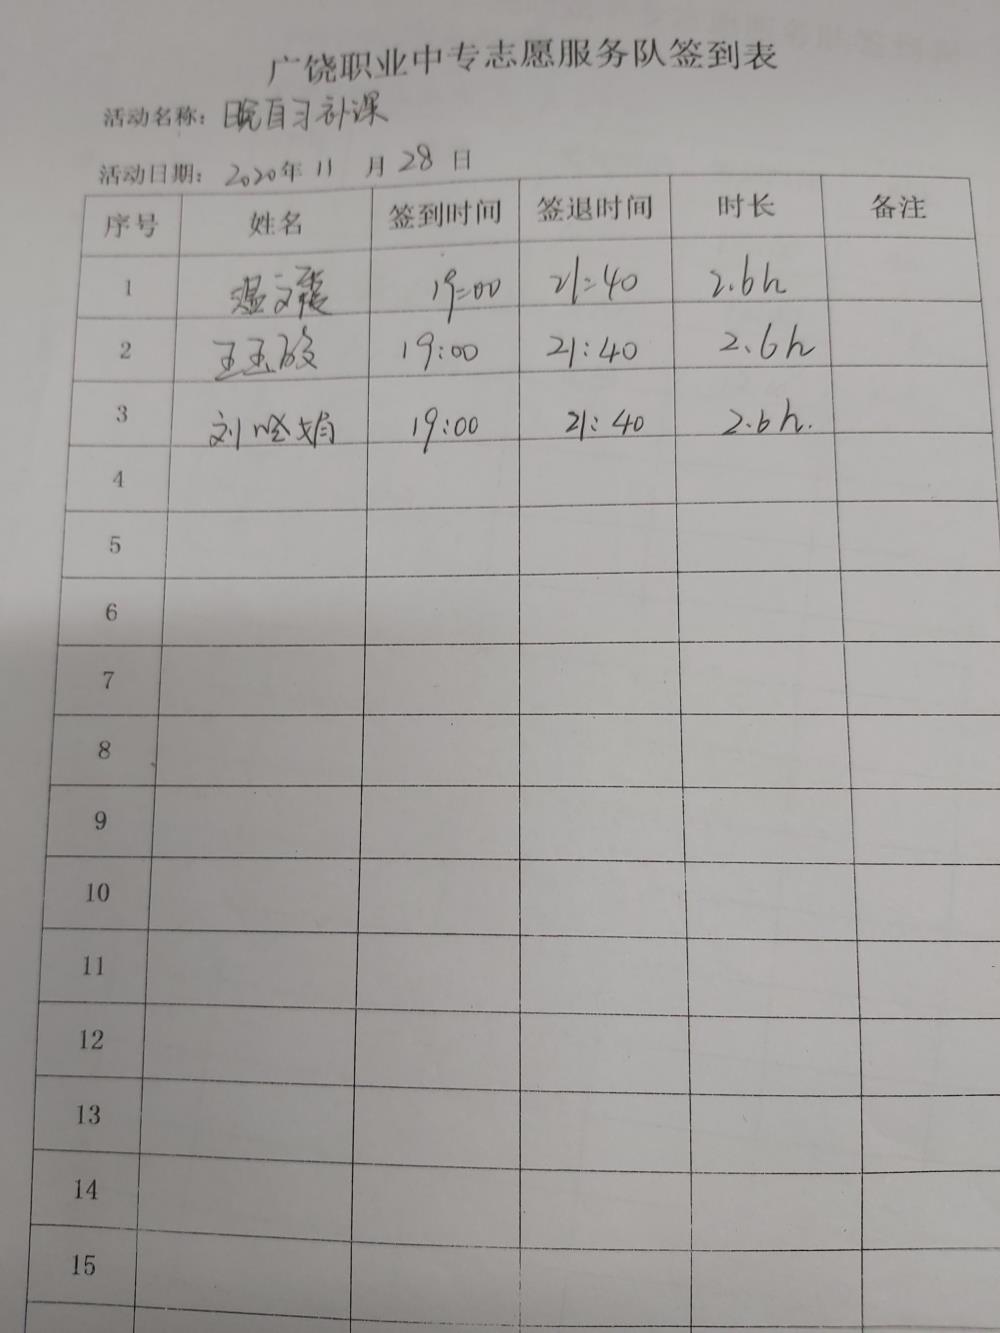 广饶职业中专志愿服务队签到表
活动名称：晚自习补课
活动日期：2020年11月28日
序号 姓名 签到时间 签退时间 时长 备注
1 温文 19:00 21:40 2.6h
2 王玉 19:00 21:40 2.6h
3 刘晓娟 19:00 21:40 2.6h.
4
5
6
7
8
9
10
11
12
13
14
15